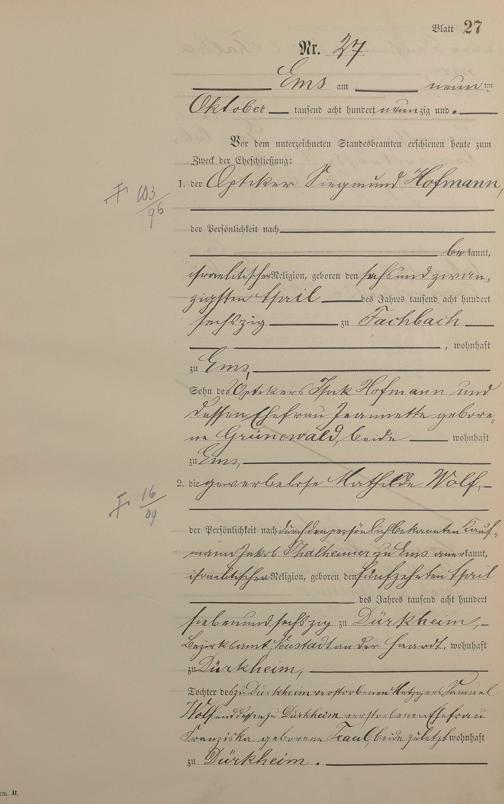 Blatt 27
Nr. 27
Ems am neunten
Oktober tausend acht hundert neunzig und
Vor dem unterzeichneten Standesbeamten erschienen heute zum
Zweck der Eheschließung:
1. der Optiker Siegmund Hofmann,
der Persönlichkeit nach
bekannt,
israelitischer Religion, geboren den sechsundzwan-
zigsten April des Jahres tausend acht hundert
sechszig zu Fachbach
, wohnhaft
zu Ems,
Sohn des Optikers Isak Hofmann und
dessen Ehefrau Jeannette gebore-
ne Grünewald, beide wohnhaft
zu Ems,
16/09
2. die gewerbelose Mathilde Wolf,
der Persönlichkeit nach durch den persönlich bekannten Kauf-
mann Jakob Thalheimer zu Ems anerkannt,
israelitischer Religion, geboren den fünfzehnten April
des Jahres tausend acht hundert
siebenundsechszig zu Dürkheim,
Bezirksamt Neustadt an der Haardt, wohnhaft
zu Dürkheim,
Tochter des zu Dürkheim verstorbenen Metzgers Samuel
Wolf und dessen zu Dürkheim verstorbenen Ehefrau
Franziska geborene Traul, beide zuletzt wohnhaft
zu Dürkheim.